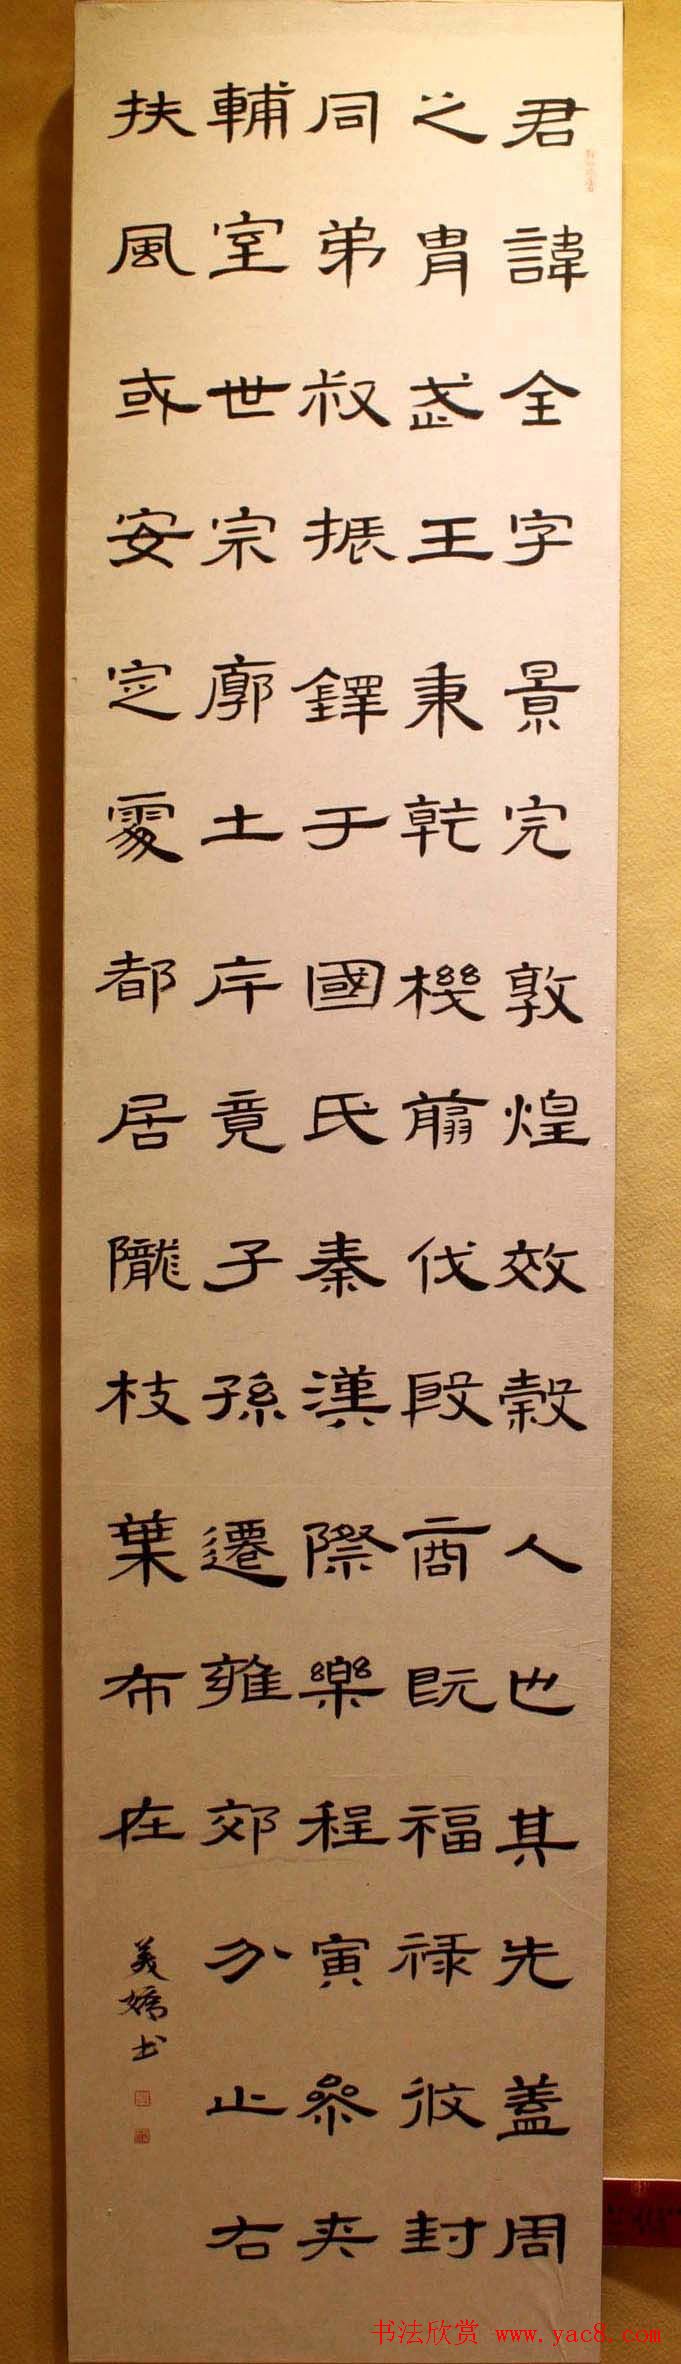 君諱全字景完敦煌效穀人也其先蓋周
之胄武王秉乾機翦伐殷商既福禄攸封
同弟叔振鐸于國氏秦漢際樂程寅參夾
輔室世宗廓土庌竟子孫遷雍郊分止右
扶風或安定處都居隴枝葉布在
美嬌书
书法欣赏 www.yac8.com